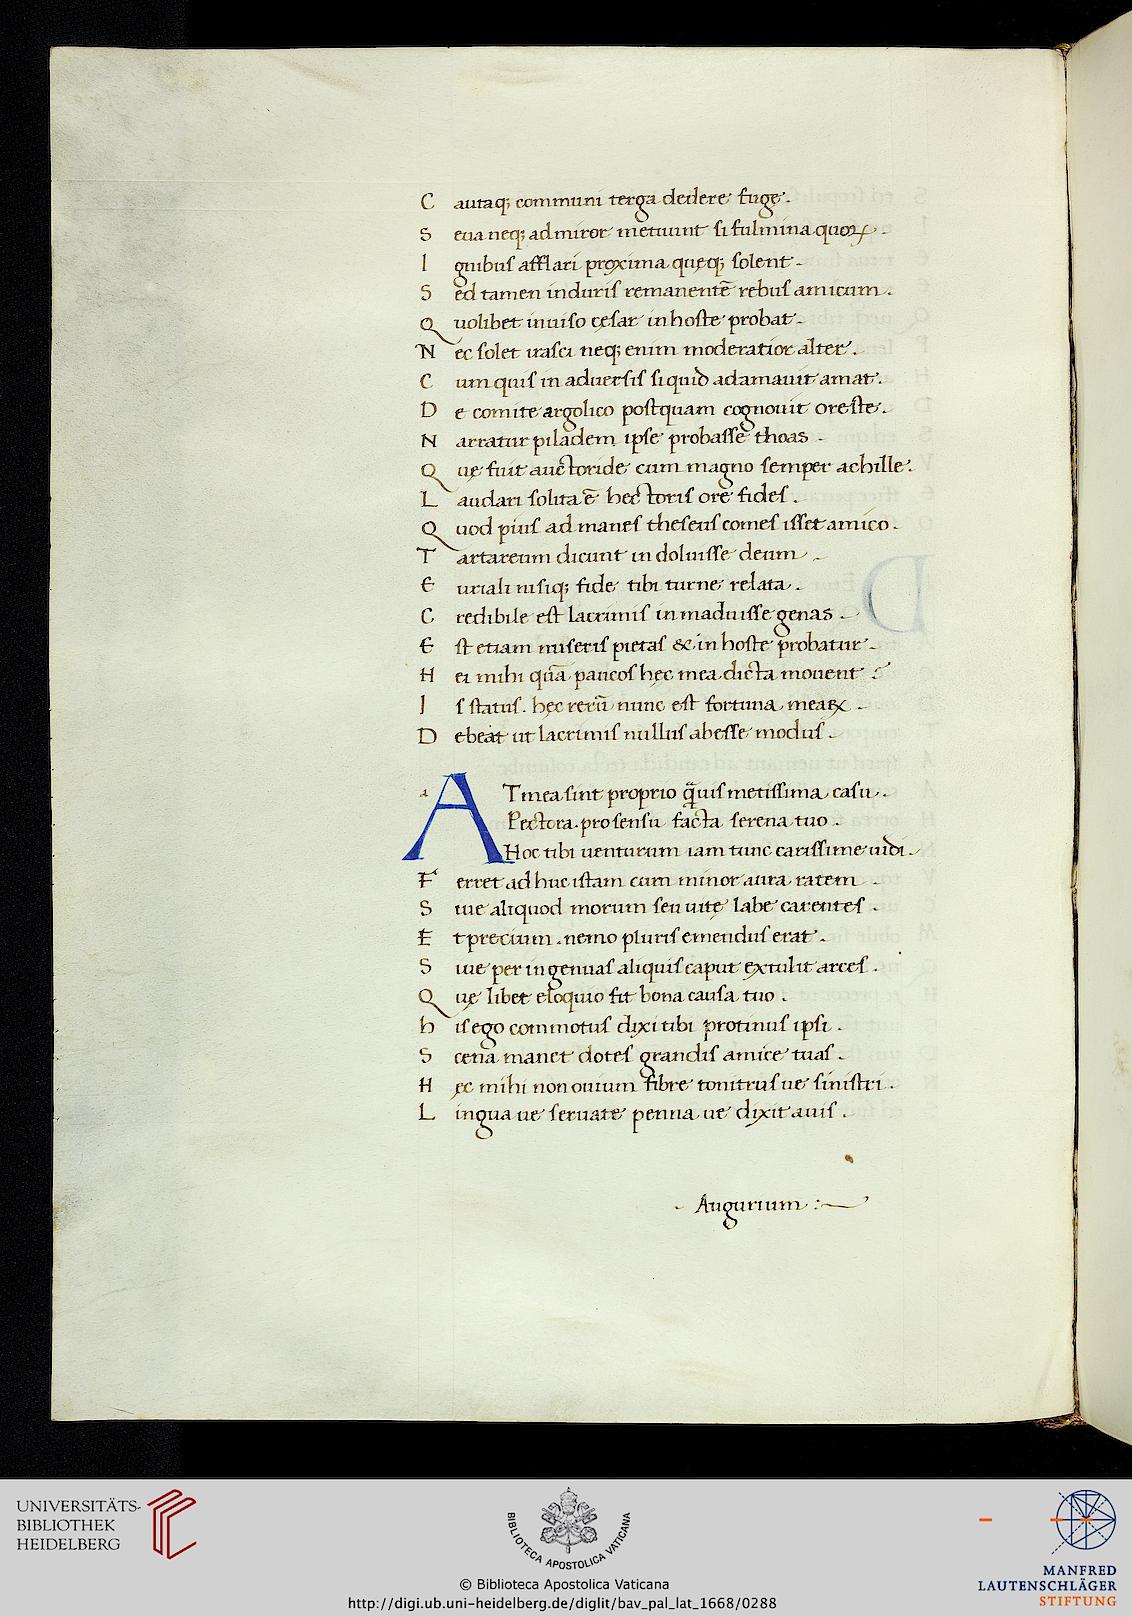 C autaq; communi terga dedere fuge.
S eua neq; admiror metuunt si fulmina quoꝝ.
I gnibus afflari proxima quęq; solent.
S ed tamen induris remanentē rebus amicum.
Q uolibet inuiso cęsar inhoste probat.
N ec solet irasci neq; enim moderatior alter.
C um quis in aduersis siquid adamauit amat.
D e comite argolico postquam cognouit oreste.
N arratur piladem ipse probasse thoas.
Q uę fuit auctoride cum magno semper achille.
L audari solita ē hectoris ore fides.
Q uod pius ad manes theseus comes isset amico.
T artareum dicunt indoluisse deum.
E uriali nisiq; fide tibi turne relata.
C redibile est lacrimis inmaduisse genas.
E st etiam miseris pietas & in hoste probatur.
H ei mihi quā paucos hęc mea dicta mouent
I s status. hęc rerū nunc est fortuna mearꝝ.
D ebeat ut lacrimis nullus abesse modus.
a
A Tmea sint proprio q̄uis metissima casu.
Pectora. pro sensu facta serena tuo.
Hoc tibi uenturum iam tunc carissime uidi.
F erret ad huc istam cum minor aura ratem.
S iue aliquod morum seu uitę labe carentes.
E t precium. nemo pluris emendus erat.
S iue per ingenuas aliquis caput extulit arces.
Q uę libet eloquio fit bona causa tuo.
h is ego commotus dixi tibi protinus ipsi.
S cena manet dotes grandis amice tuas.
H ęc mihi non ouium fibre tonitrus ue sinistri.
L ingua ue seruate penna ue dixit auis.
Augurium :
UNIVERSITÄTS-
BIBLIOTHEK
HEIDELBERG
BIBLIOTECA APOSTOLICA VATICANA
© Biblioteca Apostolica Vaticana
http://digi.ub.uni-heidelberg.de/diglit/bav_pal_lat_1668/0288
MANFRED
LAUTENSCHLÄGER
STIFTUNG